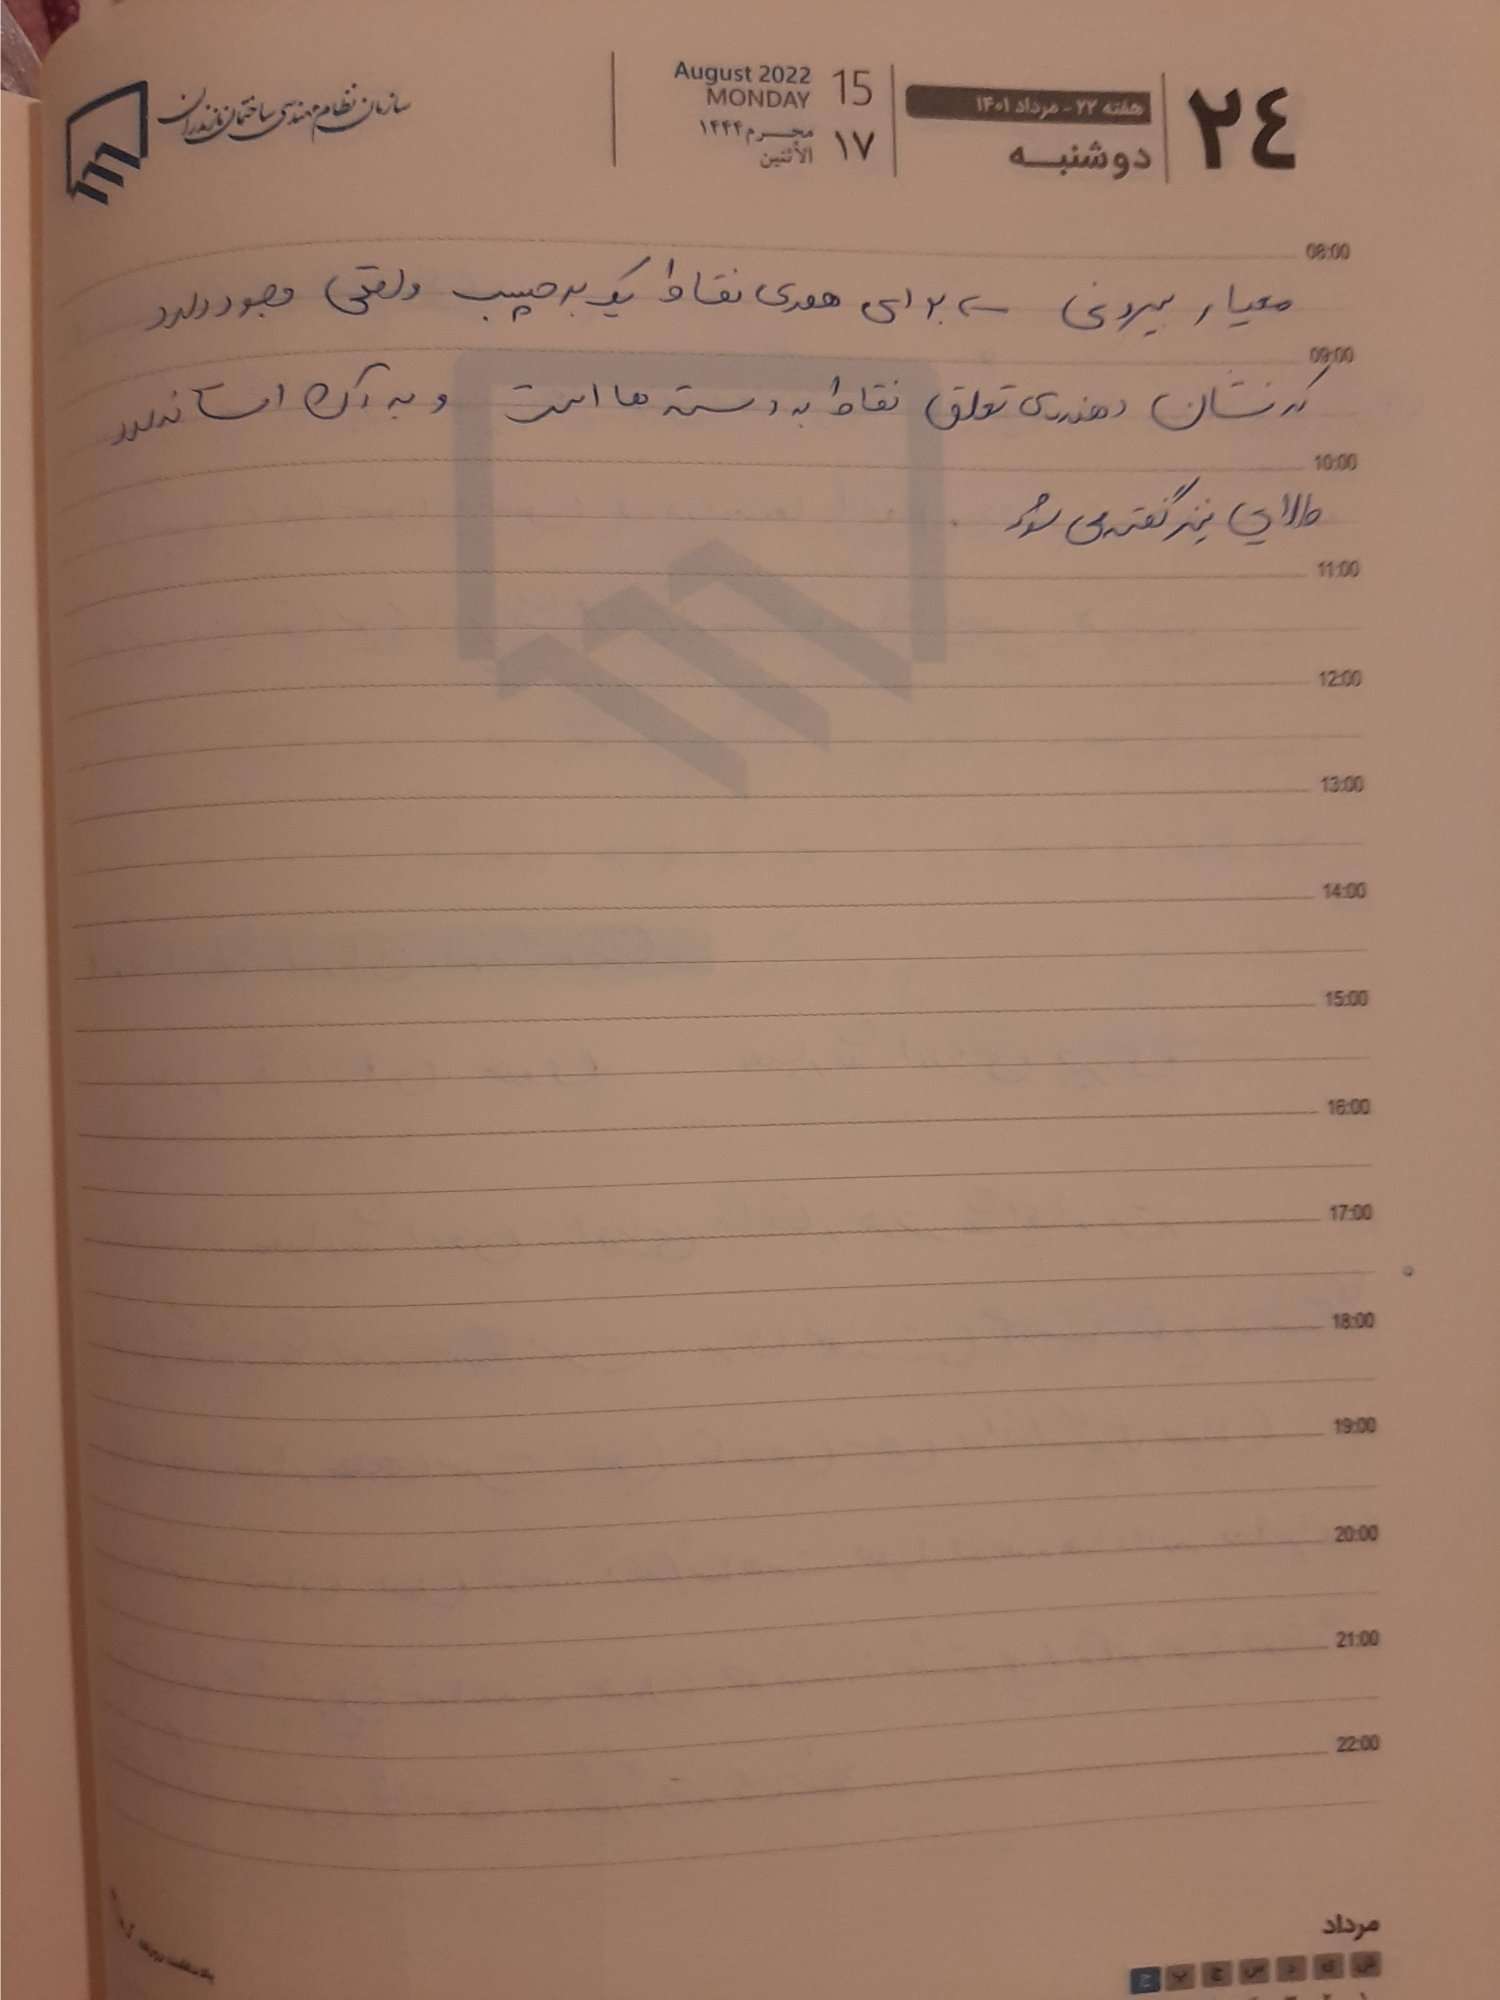 ۲۴
هفته ۲۲ - مرداد ۱۴۰۱
دوشنبه
15 August 2022
MONDAY
۱۷ محرم ۱۴۴۴
الأثنین
سازمان نظام مهندسی ساختمان مازندران
08:00
معیار بیرونی ← برای همه‌ی نقاط یک برچسب واقعی وجود دارد
09:00
که نشان دهنده‌ی تعلق نقاط به دسته ها است و به آن استاندارد
10:00
طلایی نیز گفته می شود.
11:00
12:00
13:00
14:00
15:00
16:00
17:00
18:00
19:00
20:00
21:00
22:00
مرداد
ش ی د س چ پ ج